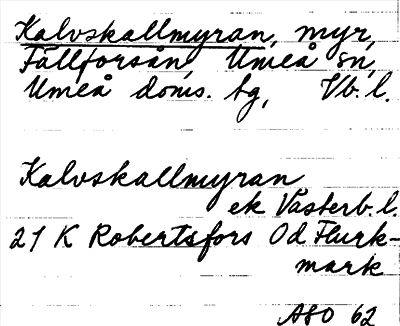 Kalvskallmyran, myr,
Fällforsån, Umeå sn,
Umeå doms. tg, Vb. l.
Kalvskallmyran
ek Västerb. l.
21 K Robertsfors Od Flurk-
mark
ASO 62